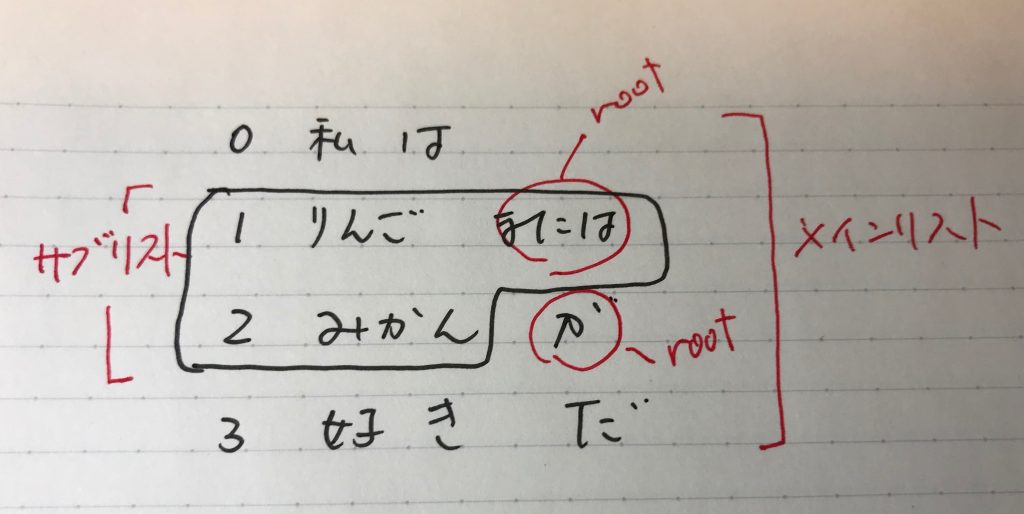 root
0 私は
1 りんご または
サブリスト
メインリスト
2 みかん が
root
3 好き だ